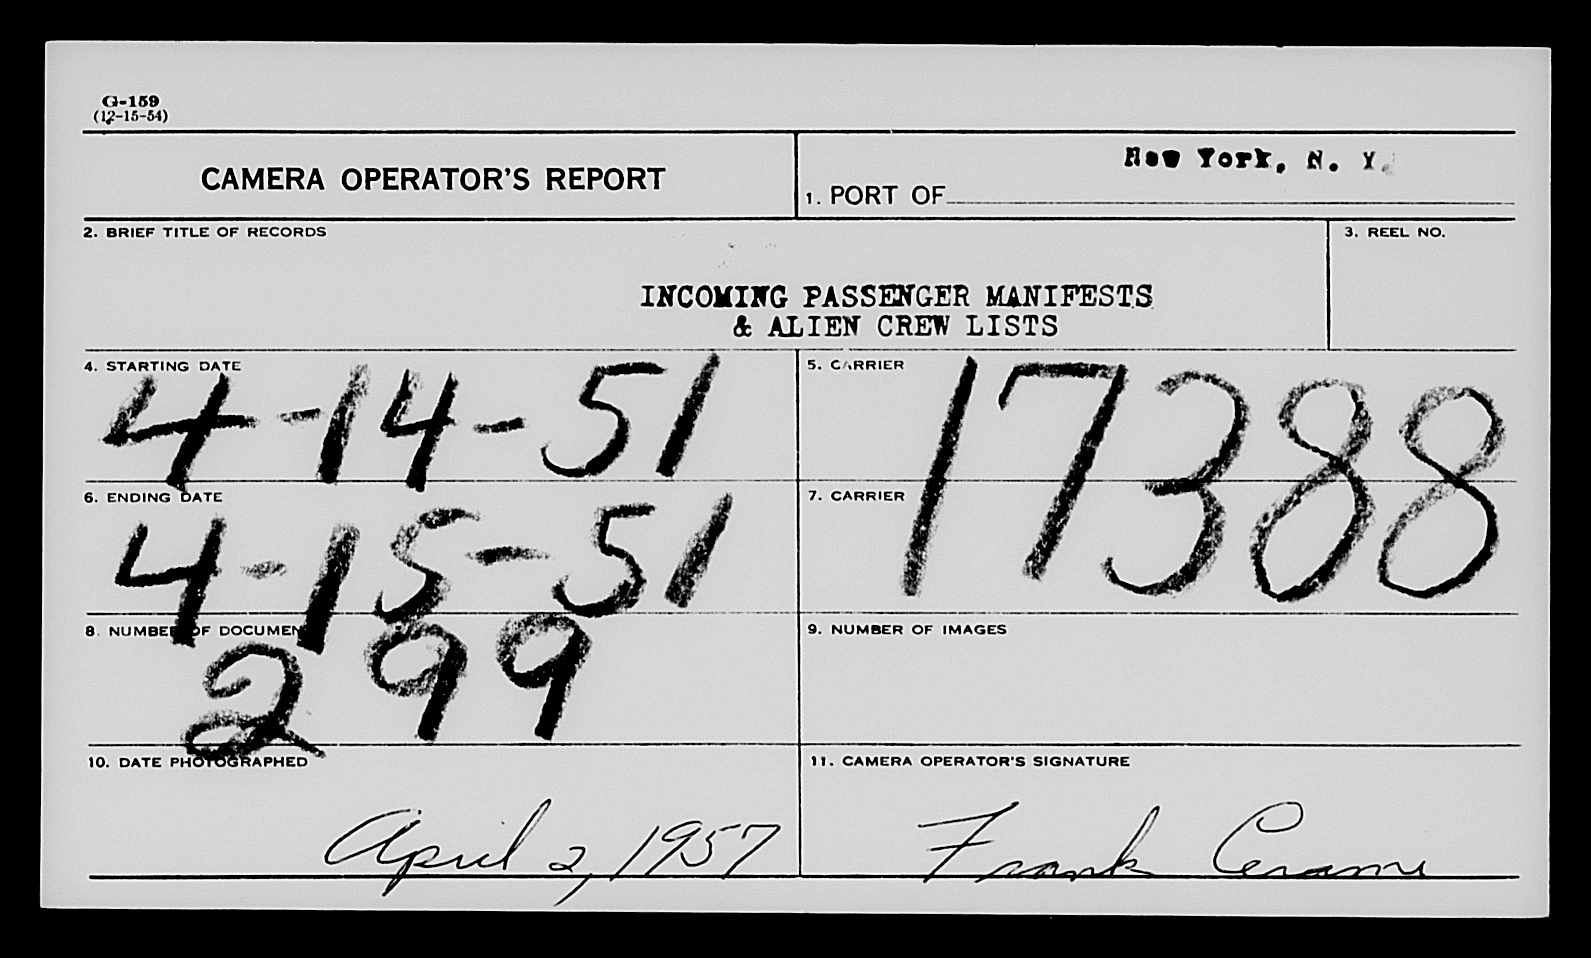 G-159
(12-15-54)
CAMERA OPERATOR'S REPORT
New York, N. Y.
1. PORT OF
2. BRIEF TITLE OF RECORDS
3. REEL NO.
INCOMING PASSENGER MANIFESTS
& ALIEN CREW LISTS
4. STARTING DATE
4-14-51
5. CARRIER
17388
6. ENDING DATE
4-15-51
7. CARRIER
8. NUMBER OF DOCUMENTS
299
9. NUMBER OF IMAGES
10. DATE PHOTOGRAPHED
April 2, 1957
11. CAMERA OPERATOR'S SIGNATURE
Frank